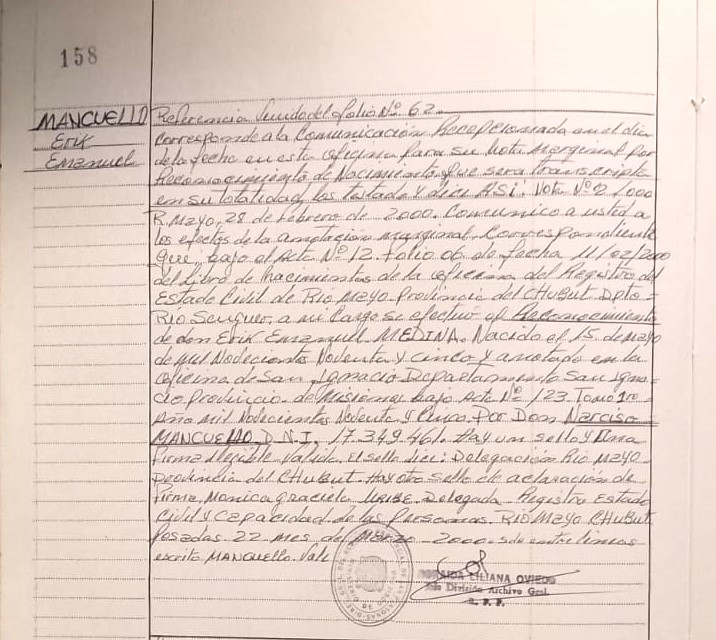 158
MANCUELLO
Erik
Emanuel
Referencia Venida del folio Nº 62.
corresponde a la Comunicación Recepcionada en el día
de la fecha en esta oficina para su Nota Marginal por
Reconocimiento de Nacimiento que sera transcripta
en su totalidad, las testado y dice ASÍ: Nota Nº 2/000
R. Mayo, 28 de febrero de 2000. Comunico a usted a
los efectos de la anotación marginal correspondiente
que, bajo el Acta Nº 12. Folio 06. de fecha 11/02/2000
del Libro de Nacimientos de la oficina del Registro del
Estado Civil de Rio Mayo Provincia del CHUBUT Dpto =
Rio Senguer, a mi Cargo se efectuo el Reconocimiento
de don Erik Emanuel MEDINA. Nacido el 15 de Mayo
de Mil Novecientos Noventa y cinco y anotado en la
oficina de San Ignacio Departamento San Igna-
cio Provincia de Misiones bajo Acta Nº 123. Tomo 1ro
Año mil Novecientos Noventa y Cinco. Por Don Narciso
MANCUELLO D.N.I. 17.349.461. Hay un sello y una
firma Ilegible. Valida. El sello dice: Delegación Rio Mayo -
provincia del CHUBUT. Hay otro sello de aclaración de
firma, Monica Graciela URIBE. Delegada - Registro Estado
Civil y Capacidad de las Personas. Rio Mayo CHUBUT.
Posadas 22 mes de Marzo - 2000. entre lineas
escrito MANCUELLO. Vale
LILIANA OVIEDO
División Archivo Gral.
R. P. P.